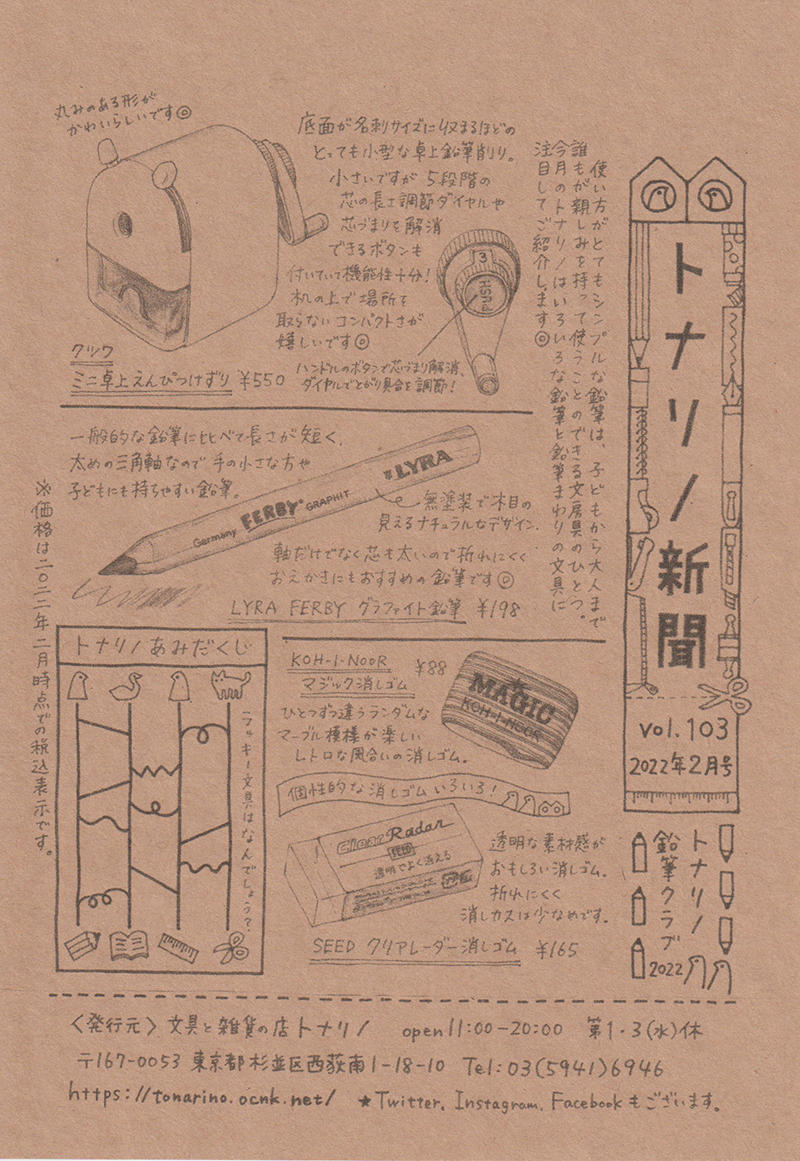 トナリノ新聞
vol.103
2022年2月号
使い方がとてもシンプルな鉛筆は、子どもから大人まで
誰もが親しみを持って使うことのできる文房具のひとつ。
今月のトナリノはいろいろな鉛筆と鉛筆まわりの文具に
注目してご紹介します☺
丸みのある形が
かわいらしいです☺
底面が名刺サイズに収まるほどの
とっても小型な卓上鉛筆削り。
小さいですが5段階の
芯の長さ調節ダイヤルや
芯づまりを解消
できるボタンも
付いていて機能性十分!
机の上で場所を
取らないコンパクトさが
嬉しいです☺
3
PUSH
ハンドルのボタンで芯づまり解消、
ダイヤルでとがり具合を調節!
クツワ
ミニ卓上えんぴつけずり ¥550
一般的な鉛筆に比べて長さが短く、
太めの三角軸なので手の小さな方や
子どもにも持ちやすい鉛筆。
Germany FERBY® GRAPHIT LYRA
無塗装で木目の
見えるナチュラルなデザイン。
軸だけでなく芯も太いので折れにくく
おえかきにもおすすめの鉛筆です☺
LYRA FERBY グラファイト鉛筆 ¥198
※価格は二〇二二年二月時点での税込表示です。
トナリノあみだくじ
ラッキー文具はなんでしょう?
KOH-I-NOOR ¥88
マジック消しゴム
ひとつずつ違うランダムな
マーブル模様が楽しい
レトロな風合いの消しゴム。
MAGIC
KOH-I-NOOR
個性的な消しゴムいろいろ!
Clear Radar
透明でよく消える
透明な素材感が
おもしろい消しゴム。
折れにくく
消しカスは少なめです。
SEED クリアレーダー消しゴム ¥165
トナリノ
鉛筆クラブ
2022
〈発行元〉文具と雑貨の店トナリノ open11:00-20:00 第1・3(水)休
〒167-0053 東京都杉並区西荻南1-18-10 Tel:03(5941)6946
https://tonarino.ocnk.net/ ★Twitter, Instagram, Facebookもございます。